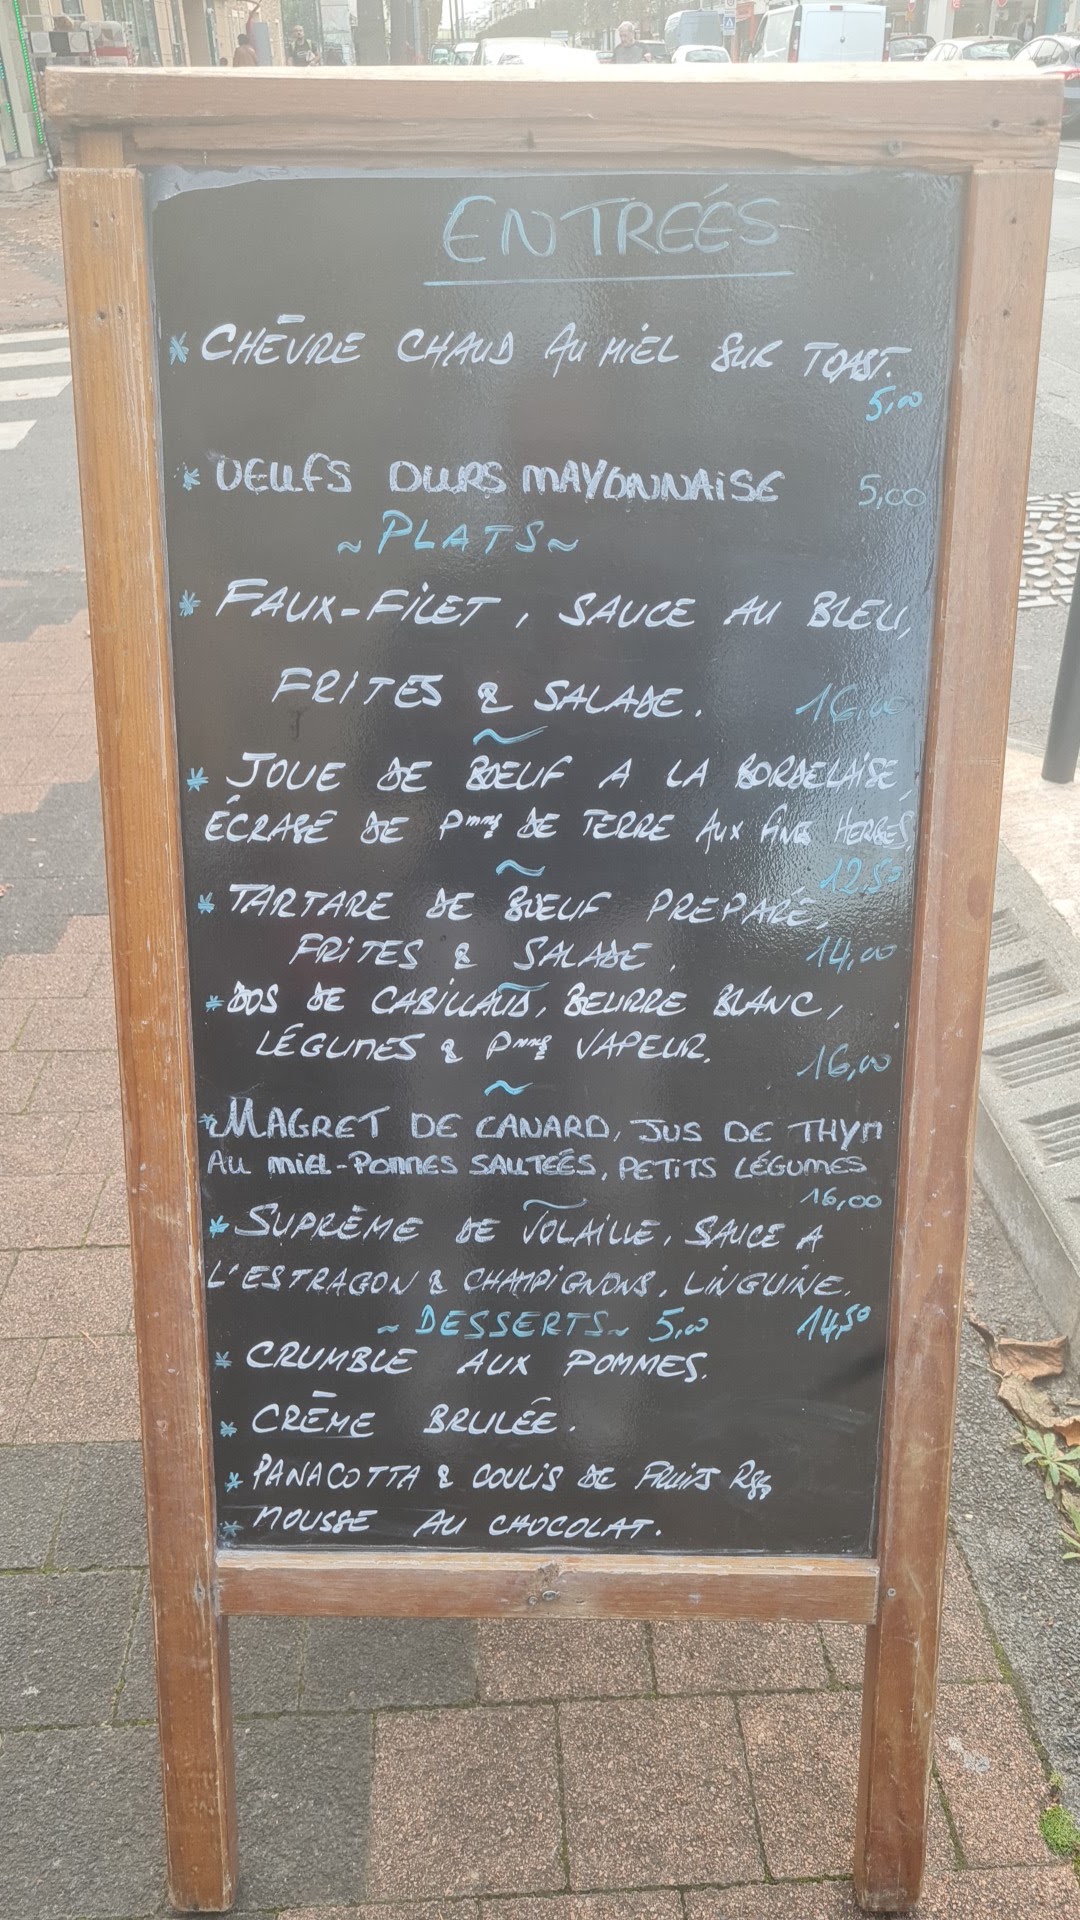 ENTREÉS
* CHÈVRE CHAUD AU MIEL SUR TOAST.
5,00
* OEUFS DURS MAYONNAISE 5,00
~ PLATS ~
* FAUX-FILET, SAUCE AU BLEU,
FRITES & SALADE. 16,00
~
* JOUE DE BOEUF A LA BORDELAISE,
ÉCRASÉ DE Pmmes DE TERRE AUX FINES HERBES,
~ 12,50
* TARTARE DE BOEUF PREPARÉ,
FRITES & SALADE. 14,00
~
* DOS DE CABILLAUD, BEURRE BLANC,
LÉGUMES & Pmmes VAPEUR. 16,00
~
* MAGRET DE CANARD, JUS DE THYM
AU MIEL-POMMES SAUTEÉS, PETITS LÉGUMES
~ 16,00
* SUPRÈME DE VOLAILLE, SAUCE A
L'ESTRAGON & CHAMPIGNONS, LINGUINE.
~ DESSERTS ~ 5,00 14,50
* CRUMBLE AUX POMMES.
* CRÈME BRULÉE.
* PANACOTTA & COULIS DE FRUITS Rgs
* MOUSSE AU CHOCOLAT.